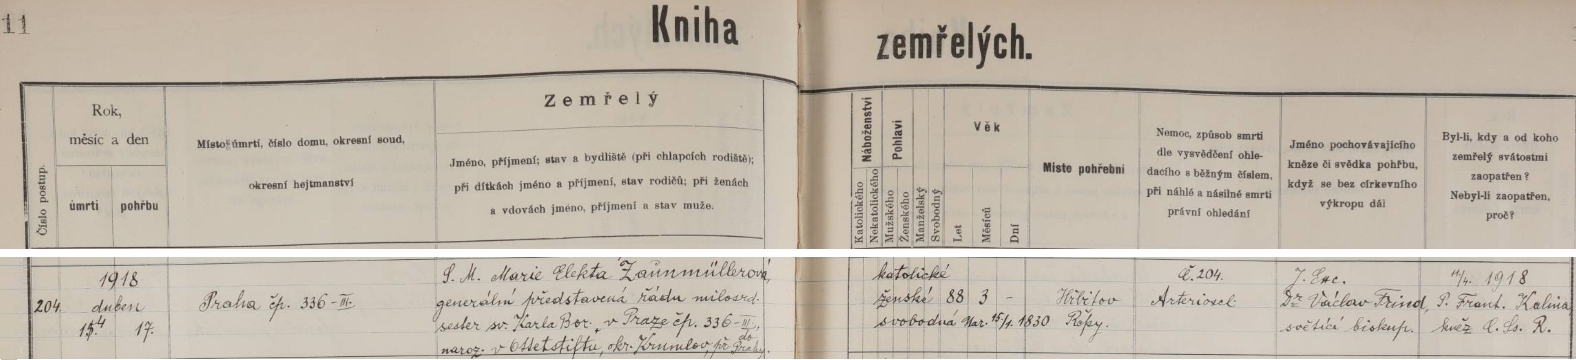 11
Kniha zemřelých.
Číslo postup.
Rok,
měsíc a den
úmrtí pohřbu
Místo úmrtí, číslo domu, okresní soud,
okresní hejtmanství
Zemřelý
Jméno, příjmení; stav a bydliště (při chlapcích rodiště);
při dítkách jméno a příjmení, stav rodičů; při ženách
a vdovách jméno, příjmení a stav muže.
Náboženství
Katolického
Nekatolického
Pohlaví
Mužského
Ženského
Manželský
Svobodný
Věk
Let
Měsíců
Dní
Místo pohřební
Nemoc, způsob smrti
dle vysvědčení ohle-
dacího s běžným číslem,
při náhlé a násilné smrti
právní ohledání
Jméno pochovávajícího
kněze či svědka pohřbu,
když se bez církevního
výkropu dál
Byl-li, kdy a od koho
zemřelý svátostmi
zaopatřen?
Nebyl-li zaopatřen,
proč?
204.
1918
duben
17.
Praha čp. 336-III.
S. M. Marie Elekta Zaunmüllerová,
generální představená řádu milosrd.
sester sv. Karla Bor. v Praze čp. 336-III.,
naroz. v Ottetstiftu, okr. Krumlov, př. do Prahy.
katolické
ženské 88 3 -
svobodná Nar. 15/1. 1830
Hřbitov
Řepy.
Č. 204.
Arterioscl.
J. Exc.
Dr. Václav Frind,
světící biskup.
1918
P. Frant. Kalina,
kněz C. Ss. R.